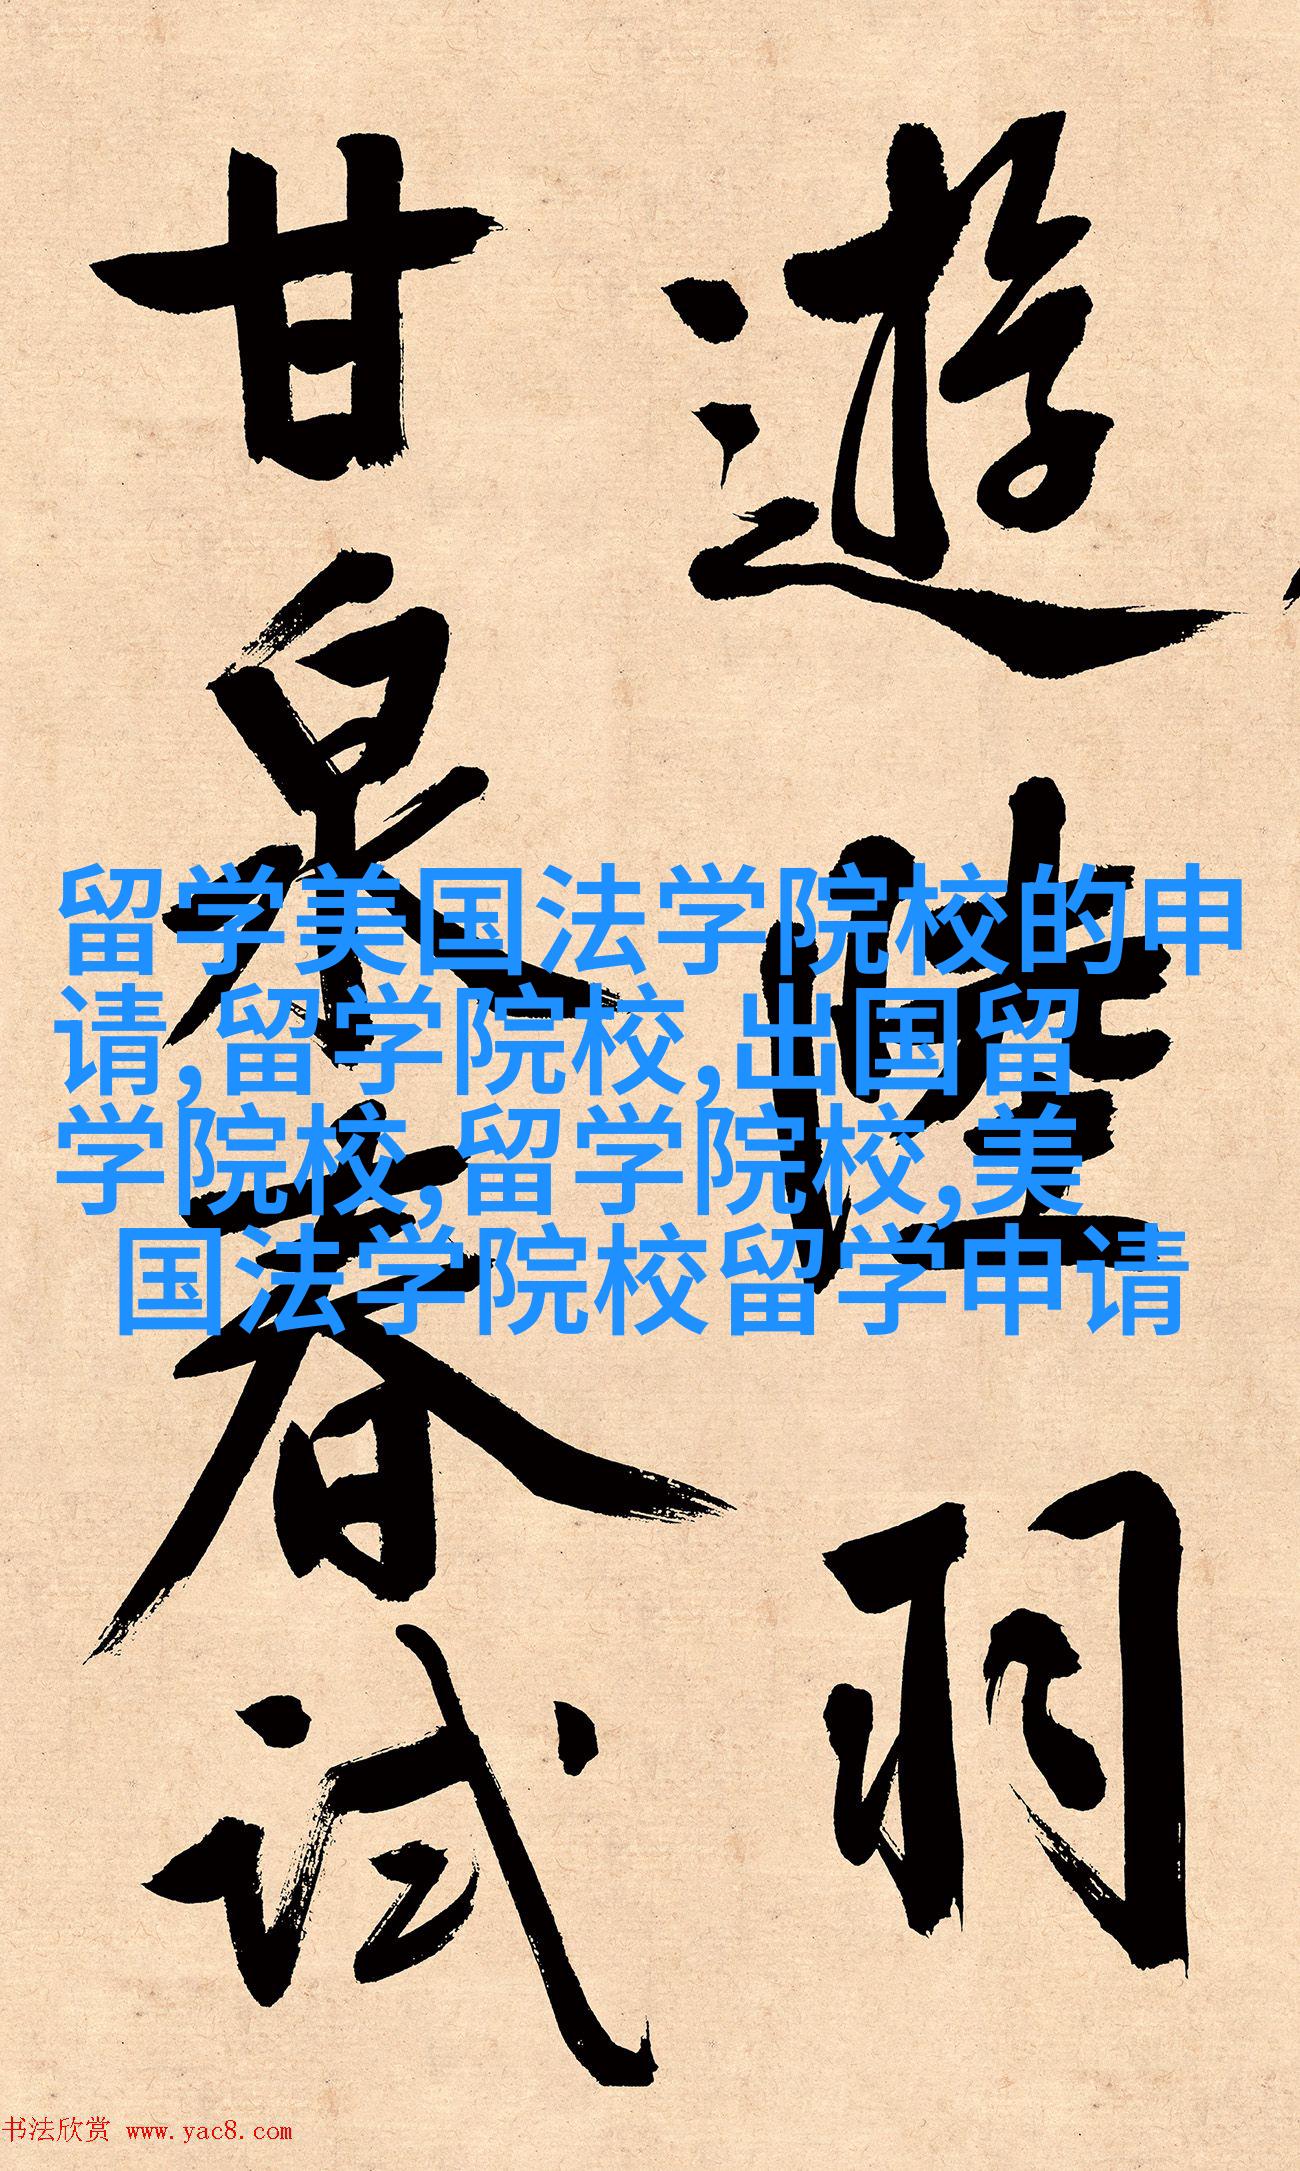 遊陸羽
甘泉春试
留学美国法学院校的申
请,留学院校,出国留
学院校,留学院校,美
国法学院校留学申请
书法欣赏 www.yac8.com